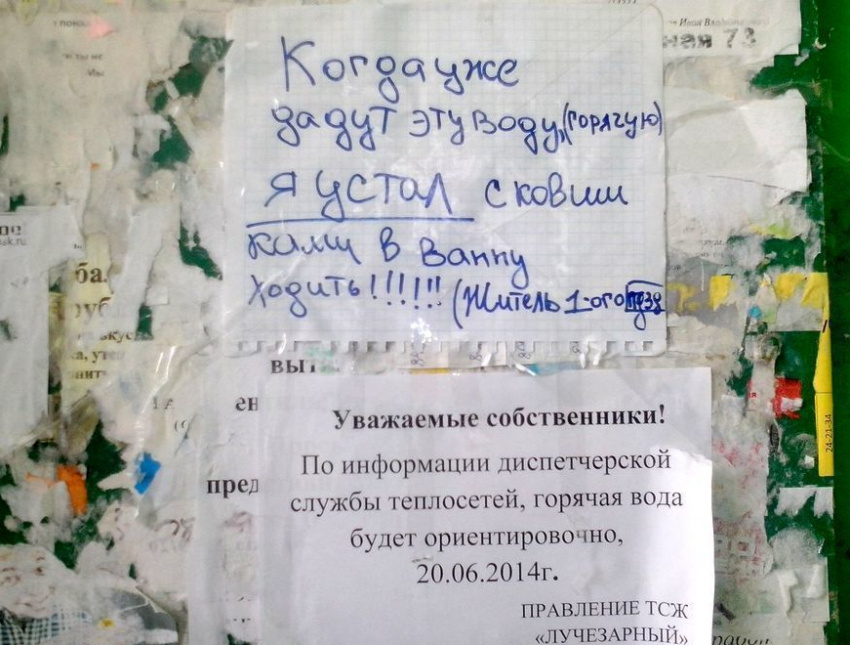 Когда уже
дадут эту воду, (горячую)
Я УСТАЛ с ковши
ками в ванну
ходить!!!!!! (Житель 1-ого
Уважаемые собственники!
По информации диспетчерской
службы теплосетей, горячая вода
будет ориентировочно,
20.06.2014г.
ПРАВЛЕНИЕ ТСЖ
«ЛУЧЕЗАРНЫЙ»
ная 73
ен
пред
24-21-34